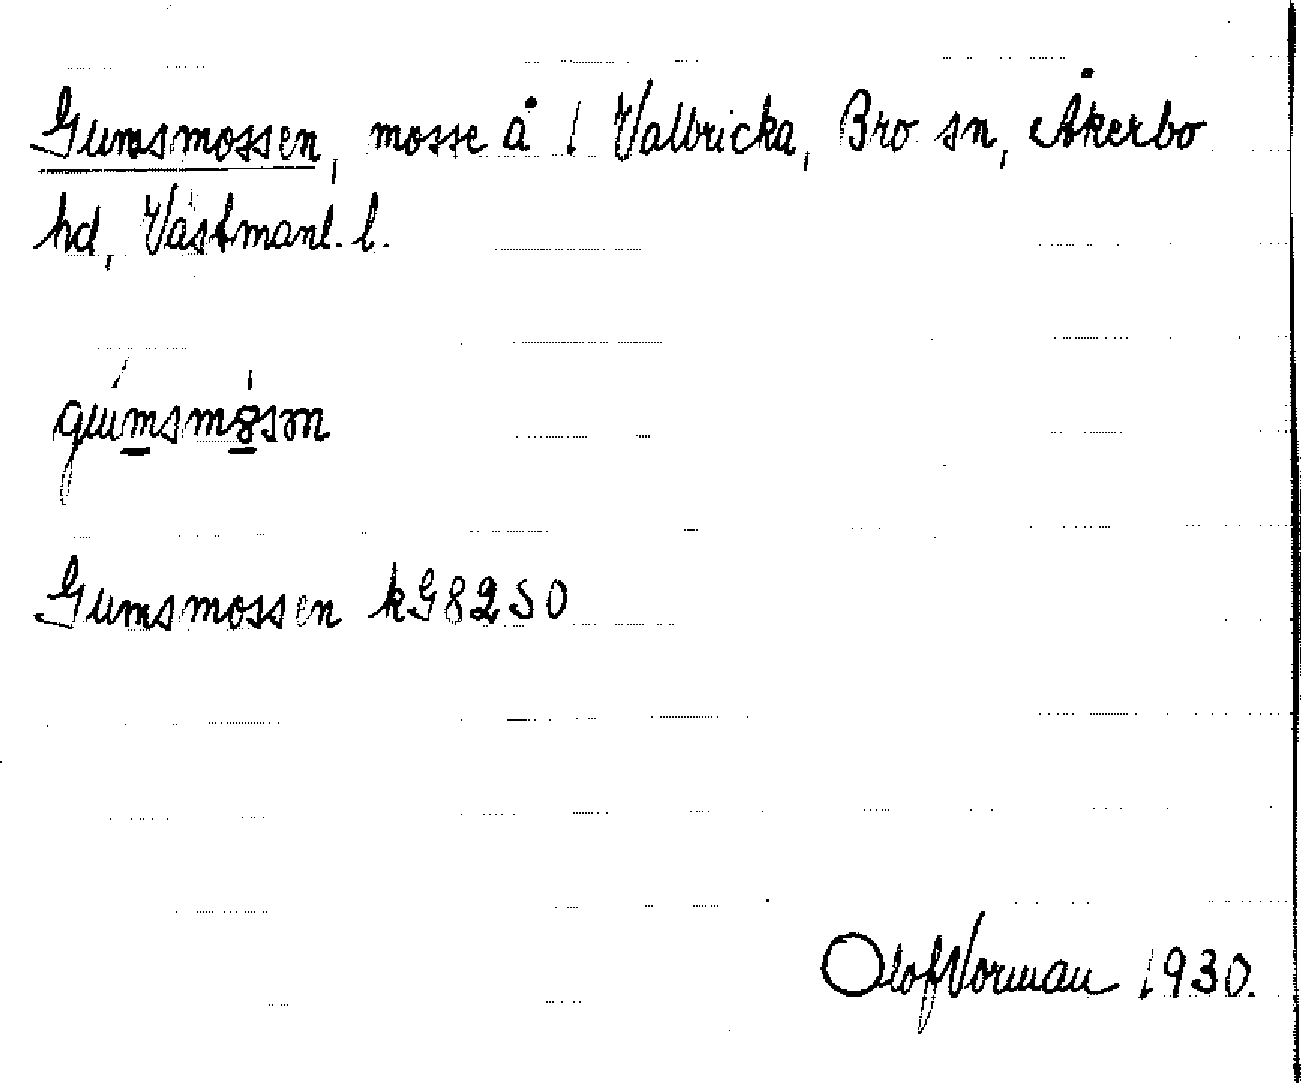 Gumsmossen, mosse å 1 Valbricka, Bro sn, Åkerbo
hd, Västmanl. l.
Gumsmossen kG8250
Olof Vorman 1930.